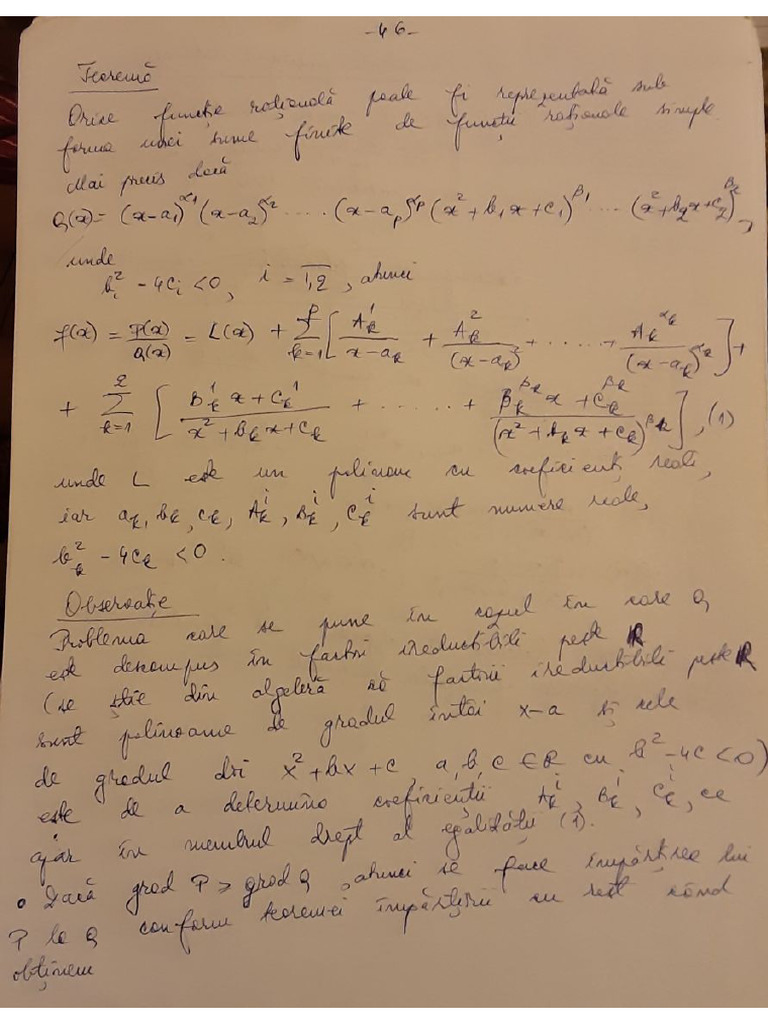 -46-
Teoremă
Orice funcție rațională poate fi reprezentată sub
forma unei sume finite de funcții raționale simple.
Mai precis dacă
Q(x) = (x-a₁)^α₁ (x-a₂)^α₂ ..... (x-aₚ)^αₚ (x²+b₁x+c₁)^β₁ .... (x²+b₂x+c₂)^β₂,
unde
bᵢ² - 4cᵢ < 0, i = 1,2, atunci
f(x) = P(x)/Q(x) = L(x) + Σ_{k=1}^{p} [ A_k^1/(x-a_k) + A_k^2/(x-a_k)^2 + ..... + A_k^{α_k}/(x-a_k)^{α_k} ] +
+ Σ_{k=1}^{2} [ (B_k^1 x + C_k^1)/(x²+b_k x+c_k) + ...... + (B_k^{β_k} x + C_k^{β_k})/(x²+b_k x+c_k)^{β_k} ], (1)
unde L este un polinom cu coeficienți reali,
iar a_k, b_k, c_k, A_k^i, B_k^i, C_k^i sunt numere reale,
b_k² - 4c_k < 0.
Observație
Problema care se pune în cazul în care Q
este descompus în factori ireductibili peste R
(se știe din algebră că factorii ireductibili peste R
sunt polinoame de gradul întâi x-a și cele
de gradul doi x²+bx+c, a, b, c ∈ R cu b²-4c<0)
este de a determina coeficienții A_k^i, B_k^i, C_k^i, ce
apar în membrul drept al egalității (1).
• Dacă grad P ≥ grad Q, atunci se face împărțirea lui
P la Q conform teoremei împărțirii cu rest când
obținem